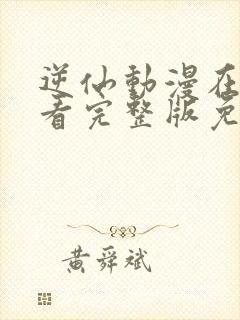 逆仙動漫在
看完整版免
黃舜斌